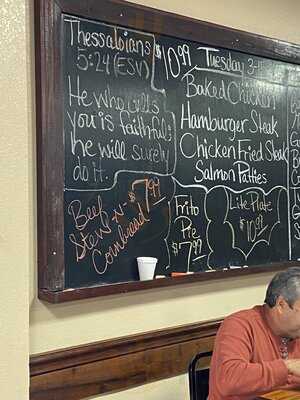 Thessalonians
5:24 (ESV)
He who calls
you is faithful;
he will surely
do it.
$10.99 Tuesday 3-
Baked Chicken
Hamburger Steak
Chicken Fried Steak
Salmon Patties
Beef
Stew-N-
Cornbread
$7.99
Frito
Pie
$7.99
Lite Plate
$10.99